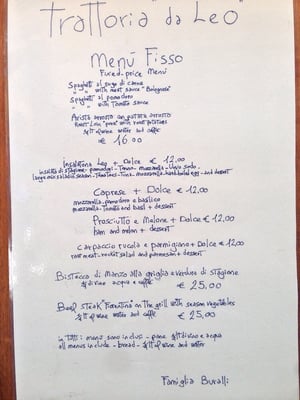 Trattoria "da Leo"
Menú Fisso
Fixed-price Menú
Spaghetti al sugo di carne
" " with meat sauce "Bolognese"
Spaghetti al pomodoro
" " with tomato sauce
Arista arrosto con patate arrosto
Roast Loin "pork" with roast potatoes
¼ lt of wine water and caffè
€ 16.00
Insalatona Leo + Dolce € 12,00
insalata di stagione - pomodori - Tonno - mozzarella - uovo sodo
large mix salad in season - Tomatoes - Tuna - mozzarella - hard boiled egg - and desert
Caprese + Dolce € 12,00
mozzarella - pomodoro e basilico
mozzarella - Tomato and basil + dessert
Prosciutto e Melone + Dolce € 12,00
ham and melon + dessert
Carpaccio rucola e parmigiano + Dolce € 12.00
raw meat - rocket salad and parmesan + dessert
Bistecca di Manzo alla griglia e verdura di stagione
¼ di vino acqua e caffè € 25,00
Beef steak "Fiorentina" on the grill with season vegetables
¼ lt of wine water and caffè € 25,00
in Tutti i menù sono inclusi - pane ¼ lt di vino e acqua
all menus include - bread - ¼ lt of wine and water
Famiglia Buralli